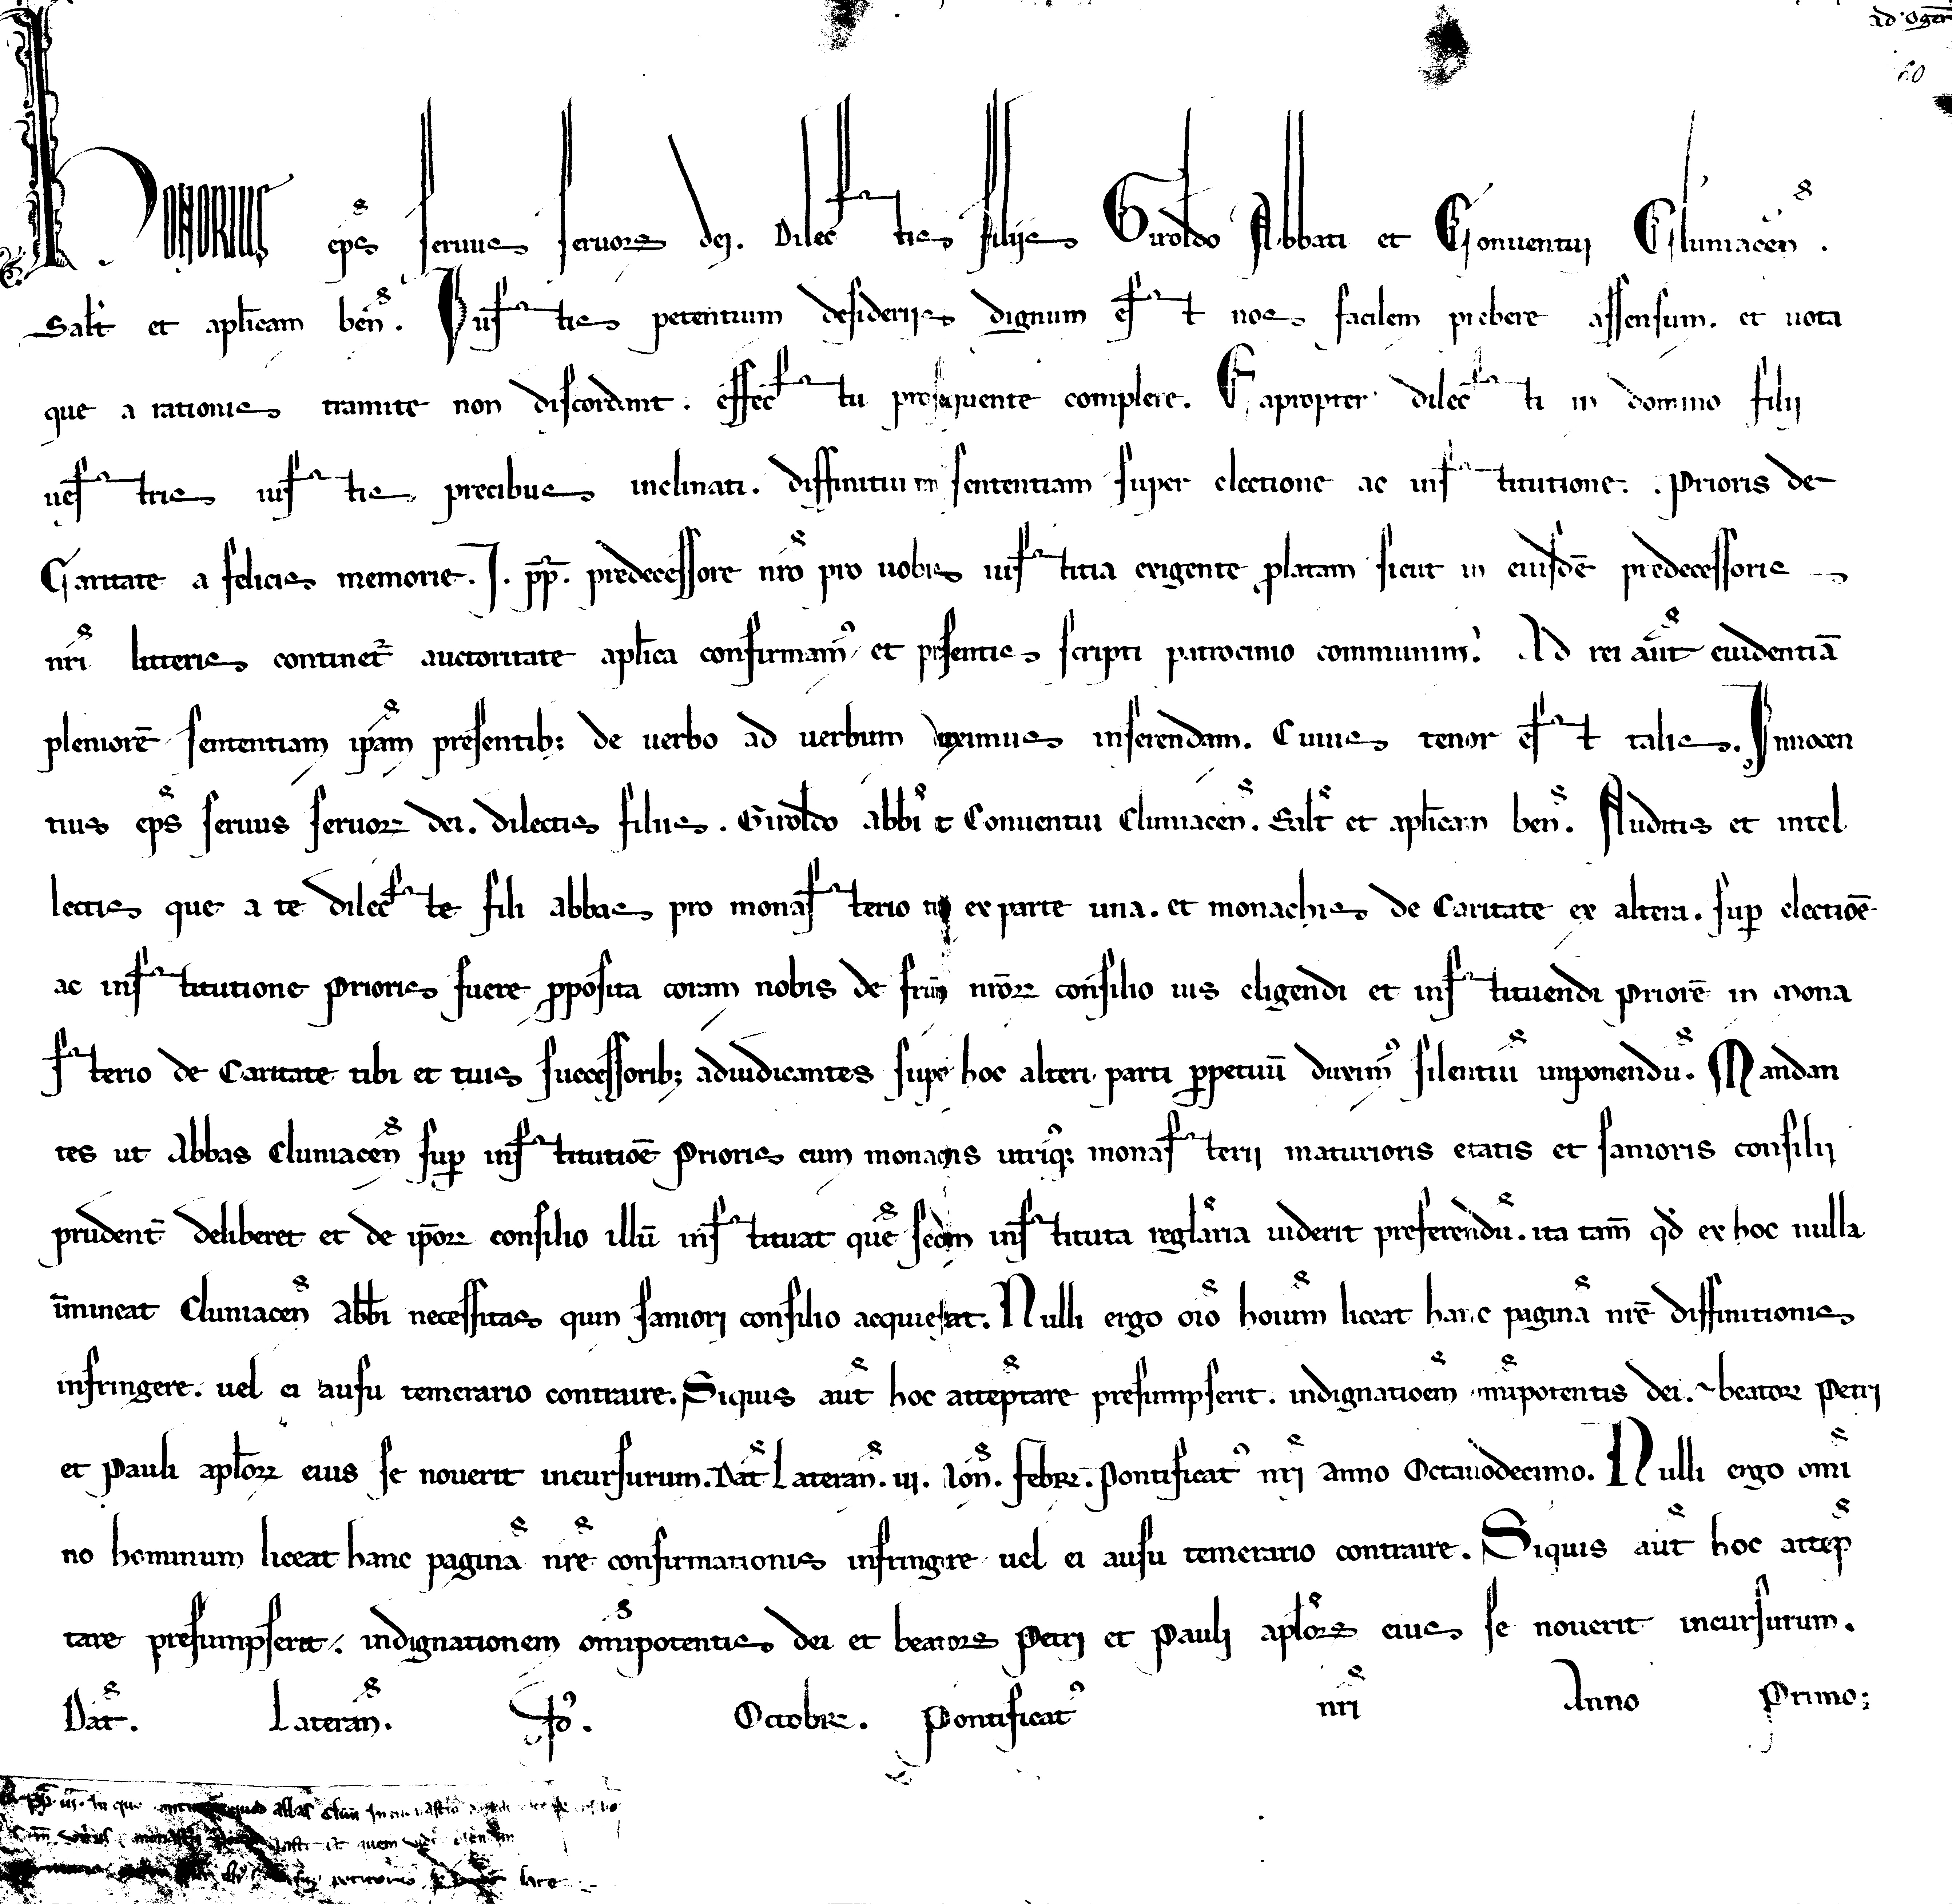 ad Ogerii
60
HONORIUS ep̄s seruus seruoꝝ dei. Dilectis filiis Giroldo Abbati et Conuentui Cluniacen̄.
Salt̄ et aplicam ben̄. Iustis petentium desideriis dignum est nos facilem prebere assensum. et uota
que a rationis tramite non discordant. effectu prosequente complere. Eapropter dilecti in domino filii
uestris iustis precibus inclinati. diffinitiuam sententiam super electione ac institutione Prioris de
Caritate a felicis memorie. I. pp̄. predecessore nr̄o pro uobis iustitia exigente ꝓlatam sicut in eiusdē predecessoris
nr̄i litteris continet᷑ auctoritate aplica confirmamꝰ et presentis scripti patrocinio communimꝰ. Ad rei aut̄ euidentiā
pleniorē sententiam ip̄am presentibꝫ de uerbo ad uerbum duximus inserendam. Cuius tenor est talis. Innocen
tius ep̄s seruus seruoꝝ dei. dilectis filiis. Giroldo abbi t Conuentui Cluniacen̄. Salt̄ et aplicam ben̄. Auditis et intel
lectis que a te dilecte fili abbas pro monasterio tuo ex parte una. et monachis de Caritate ex altera. suꝑ electiōe
ac institutione Prioris fuere ꝓposita coram nobis de fr̄m nr̄oꝝ consilio ius eligendi et instituendi Priorē in mona
sterio de Caritate tibi et tuis successoribꝫ adiudicantes supe hoc alteri parti ꝑpetuū duximꝰ silentiū imponendū. Mandan
tes ut Abbas Cluniacen̄ suꝑ institutiōe Prioris cum monachis utriusqꝫ monasterii maturioris etatis et sanioris consilii
prudent᷑ deliberet et de ip̄oꝝ consilio illū instituat quē scd̄m instituta reglaria uiderit preferendū. ita tam̄ qd̄ ex hoc nulla
īmineat Cluniacen̄ Abbi necessitas quin saniori consilio acquiescat. Nulli ergo oīo hoium liceat hanc paginā nrē diffinitionis
infringere. uel ei ausu temerario contraire. Siquis aut̄ hoc atteptare presumpserit. indignatioem omipotentis dei. et beatoꝝ Petri
et Pauli aploꝝ eius se nouerit incursurum. Dat̄ Lateran̄. iii. Non̄. Febrꝛ. Pontificatꝰ nr̄i anno Octauodecimo. Nulli ergo omi
no hominum liceat hanc paginā nr̄e confirmationis infringere uel ei ausu temerario contraire. Siquis aut̄ hoc attep
tare presumpserit. indignationem omipotentis dei et beatoꝝ Petri et Pauli aploꝝ eius se nouerit incursurum.
Dat̄. Lateran̄. Octobrꝛ. Pontificatꝰ nr̄i Anno Primo;
pp̄. iii. In quo quod abbas Clun̄